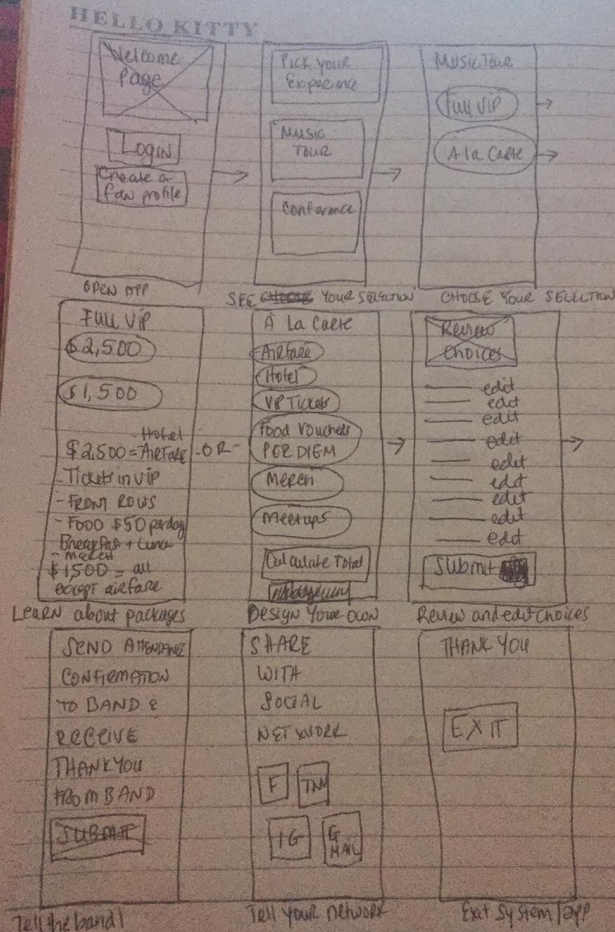 HELLO KITTY
Welcome
Page
LOGIN
Create a
fan profile
OPEN APP
Pick your
Experience
MUSIC
TOUR
Conference
SEE CHOOSE YOUR SELECTION
MUSIC TOUR
Full VIP
A la Carte
CHOOSE YOUR SELECTION
Full VIP
$2,500
$1,500
Hotel
$2,500 = AIRFARE
- Tickets in VIP
- FRONT ROWS
- FOOD $50 perday
Breakfast + Lunch
- merch
$1500 = all
except airfare
Learn about packages
- OR -
À La Carte
Airfare
Hotel
VIP Tickets
Food Vouchers
PER DIEM
Merch
Meetups
Calculate Total
Design Your Own
Review
Choices
edit
edit
edit
edit
edit
edit
edit
edit
edit
Submit
Review and edit Choices
SEND ATTENDANCE
CONFIRMATION
TO BAND &
RECEIVE
THANK YOU
FROM BAND
SUBMIT
Tell the band!
SHARE
WITH
SOCIAL
NETWORK
F
IG
G
MAIL
Tell Your network
THANK YOU
EXIT
Exit System/app